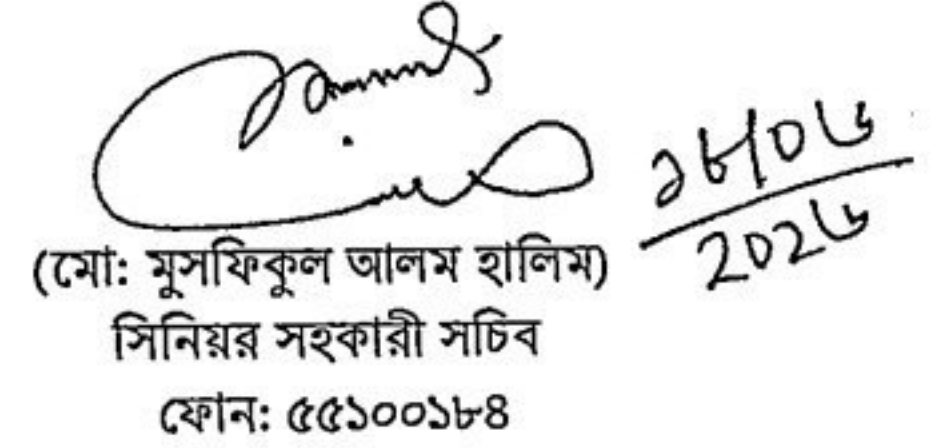 ১৮/০৬
২০২৬
(মো: মুসফিকুল আলম হালিম)
সিনিয়র সহকারী সচিব
ফোন: ৫৫১০০১৮৪